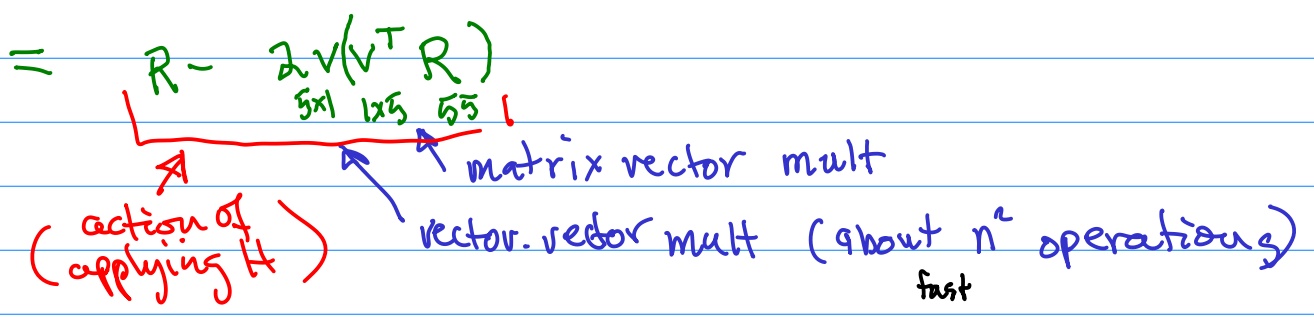 = R - 2 v(vᵀ R)
5x1 1x5 55
matrix vector mult
(action of applying H)
vector. vector mult (about n² operations)
fast